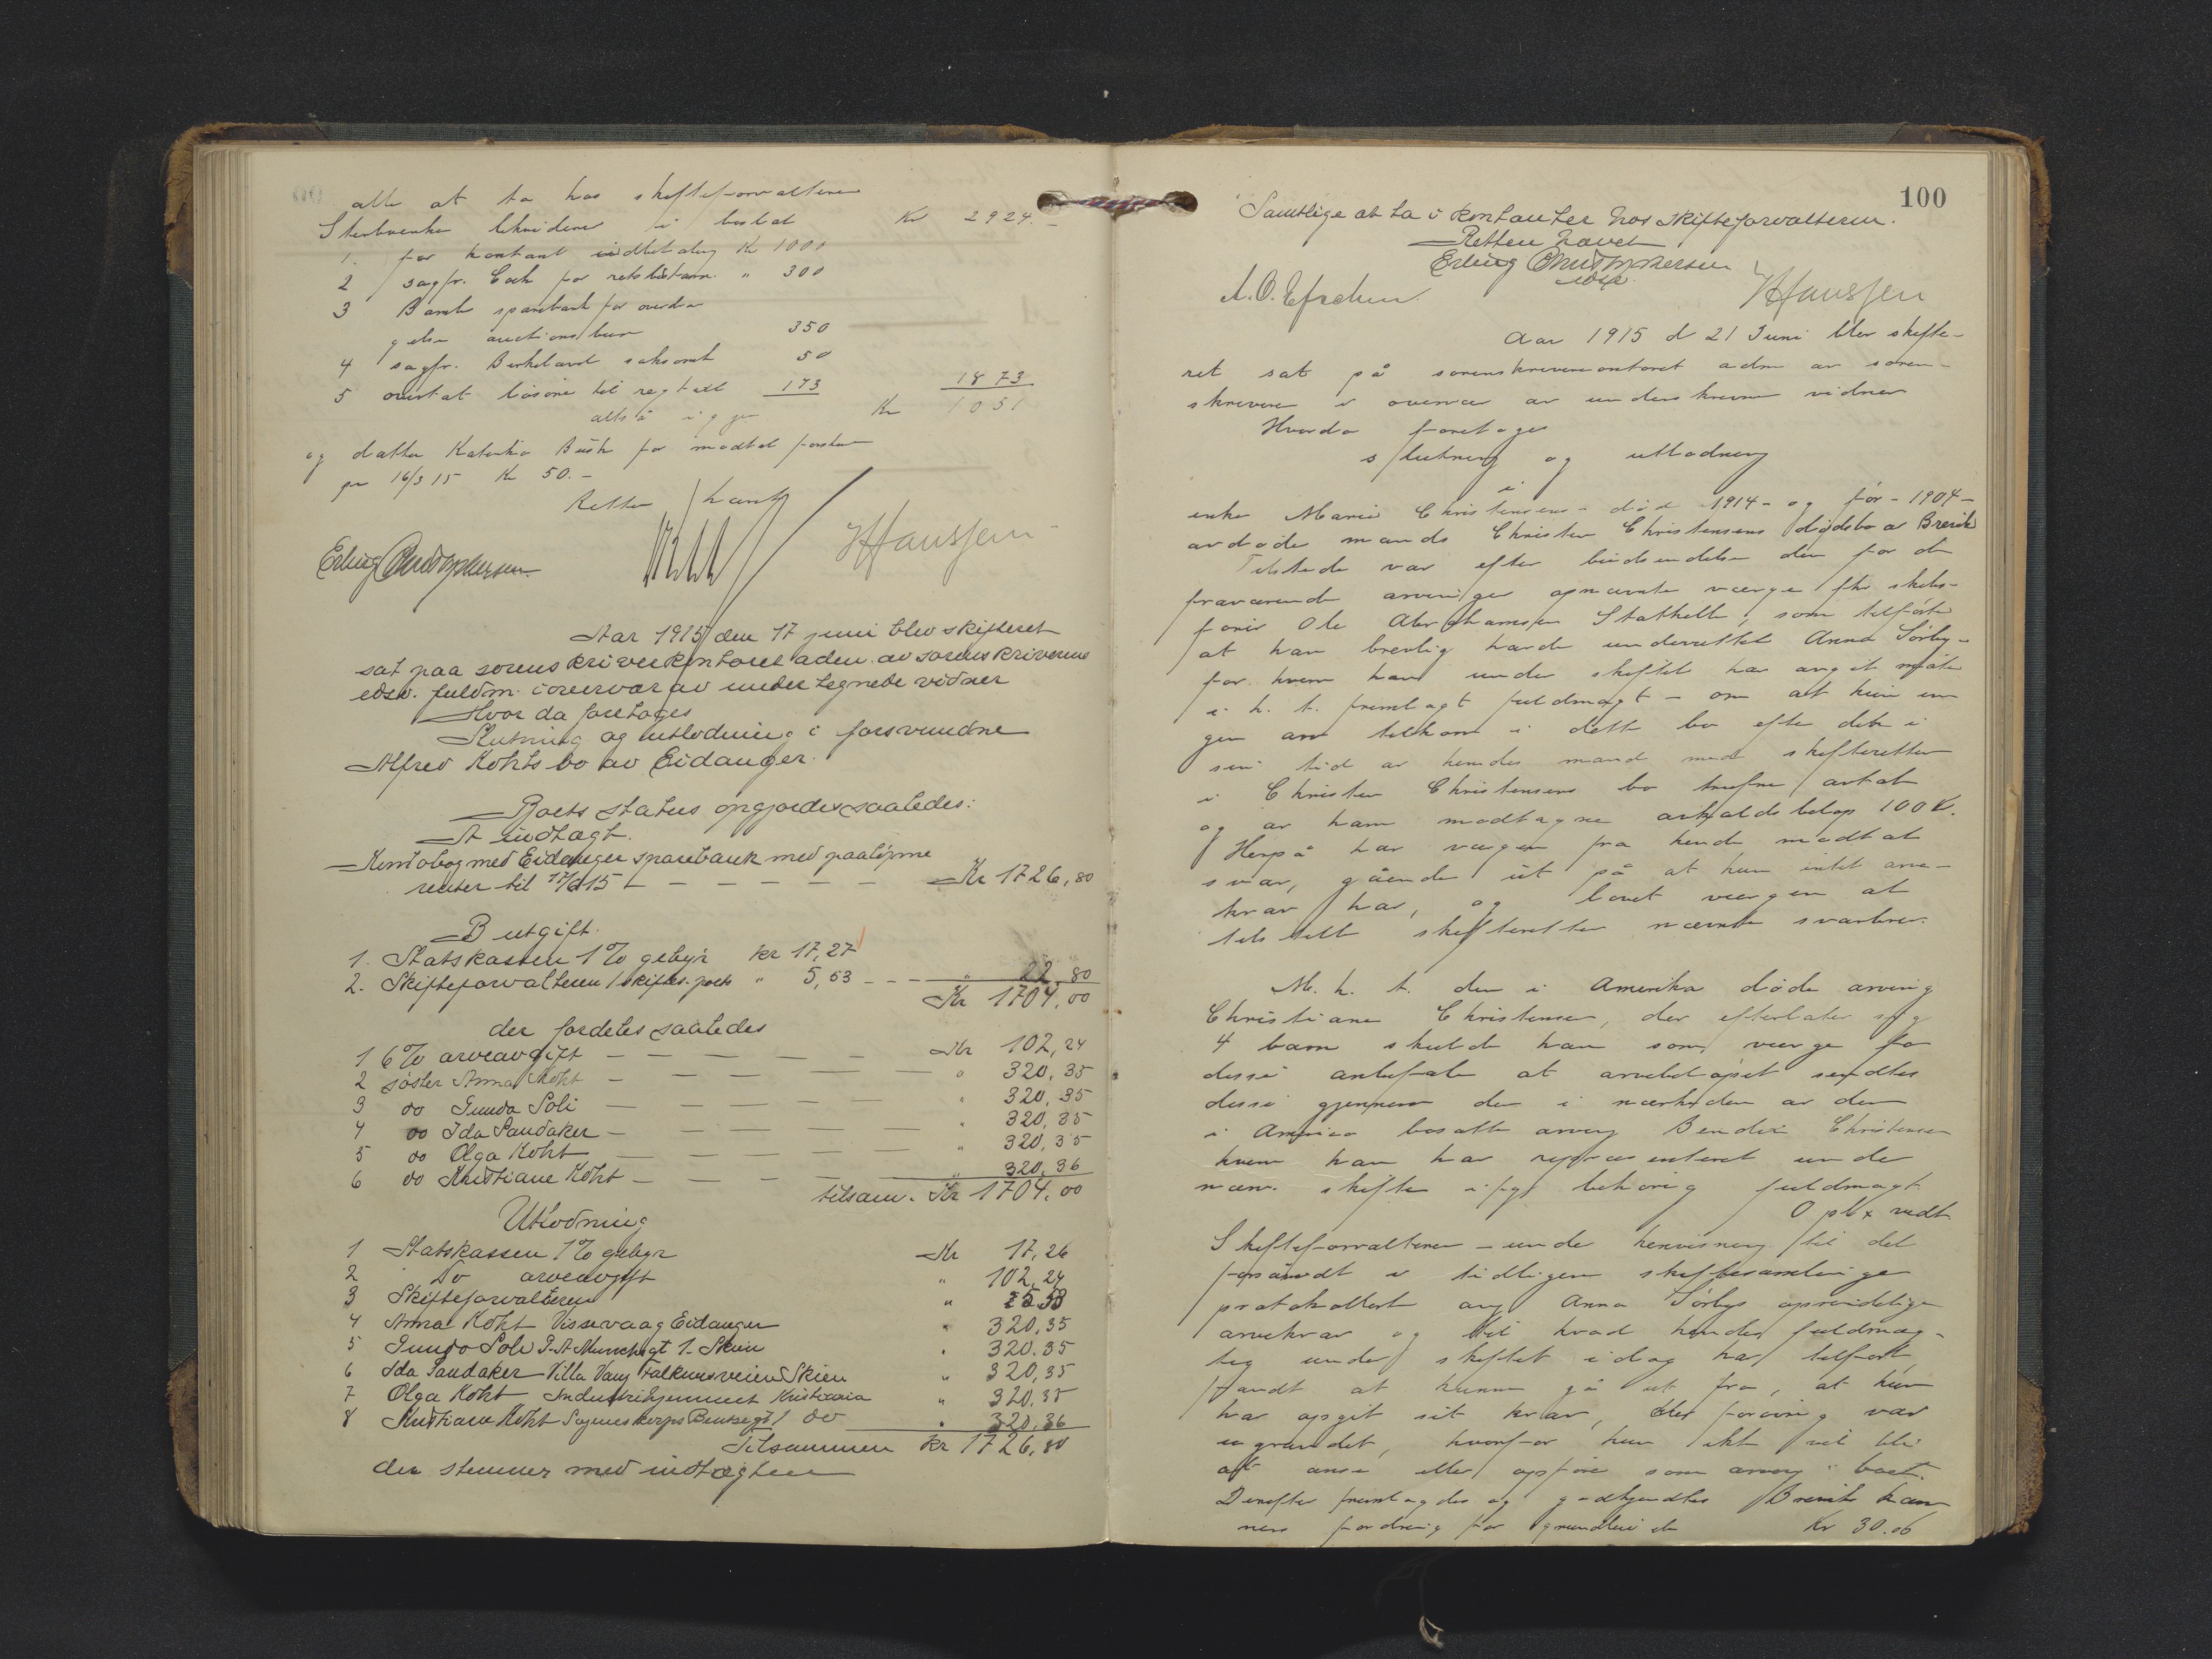 alle at ta hos skifteforvalteren
Sterbvenke likviderer i bostat Kr 2924.-
1. for kontant indbetaling Kr 1000
2 sagfr. Coch for retsbistann. " 300
3 Bamle sparebank for overdra
gelse auctions 350
4 sagfr. Birkeland saksomk 50
5 overtat løsøre til regtakst 173 1873
altså igjen Kr 1051
og datter Katinka Bush for modtat forsku
pr 16/3 15 Kr 50.-
Retten hævet
Erling Christophersen HHanssen
Aar 1915 den 17 juni blev skifteret
sat paa sorenskriverkontoret adm. av sorenskriverens
edsv. fuldm. i overvær av undertegnede vidner
Hvor da foretages
Slutning og utlodning i forsvundne
Alfred Kohts bo av Eidanger.
Boets status opgjordes saaledes:
A indtægt.
Kontobog med Eidanger sparebank med paaløpne
renter til 17/6 15 - - - - - - Kr 1726,80
B utgift.
1. Statskassen 1% gebyr kr 17,27
2. Skifteforvalteren skiftes. porto " 5,53 - - - " 22,80
Kr 1704,00
der fordeles saaledes
1 6% arveavgift - - - - - Kr 102,24
2 søster Anna Koht - - - - - " 320,35
3 do Gunda Soli - - - - - " 320,35
4 do Ida Sandaker - - - - - " 320,35
5 do Olga Koht - - - - - " 320,35
6 do Kristiane Koht - - - - " 320,36
tilsam. Kr 1704,00
Utlodning
1 Statskassen 1% gebyr Kr 17,26
2 Do arveavgift " 102,24
3 Skifteforvalteren "
4 Anna Koht Vissevaag Eidanger " 320,35
5 Gunda Soli P. A. Munchsgt 1. Skien " 320,35
6 Ida Sandaker Villa Vang Falkumsveien Skien " 320,35
7 Olga Koht Industrihjemmet Kristiania " 320,35
8 Kristiane Koht do " 320,36
Tilsammen Kr 1726,80
der stemmer med indtægten
100
Samtlige at ta i kontanter hos skifteforvalteren.
Retten hævet
Erling Christophersen
edsv.
HHanssen
Aar 1915 d 21 Juni blev skifte-
ret sat på sorenskriverkontoret adm av soren-
skriveren i overvær av underskrevne vidner
Hvorda foretoges
slutning og utlodning
i
enke Marie Christensens - død 1914 - og før - 1904 -
avdøde mands Christen Christensens dødsbo av Brevik
Tilstede var efter bindsendelse den for de
fraværende arvinger opnævnte værge fhv skibs-
fører Ole Abrahamsen Stathelle, som tilførte
at han brevlig havde underrettet Anna Sørby -
for hvem han under skiftet har angit møte
i h. t. fremlagt fuldmagt - om at hun in
gen arv tilkom i dette bo efter det i
sin tid av hendes mand med skifteretten
i Christen Christensens bo trufne avtale
og av ham modtagne avkaldsbeløp 100 Kr.
Herpå har værgen fra hende modtat
svar, gående ut på at hun intet arve-
krav har, og lovet værgen at
tilstille skifteretten nævnte svarbrev.
M. h. t. den i Amerika døde arving
Christiane Christensen, der efterlater sig
4 barn skulde han som værge for
disse anbefale at arvebeløpet sendtes
disse gjennem den i nærheden av dem
i America bosatte arving Bendix Christensen
hvem han har repræsenteret under
nærv. skifte ifgl behørig fuldmagt.
O plx vedt
Skifteforvalteren - under henvisning til det
forsåvidt i tidligere skiftesamlinger
protokollert ang Anna Sørbys oprindelige
arvekrav og til hvad hendes fuldmæg-
tig under skiftet idag har tilført,
fandt at kunne gå ut fra, at hun
har opgit sit krav, der forøvrig var
ugrundet, hvorfor hun ikke vil bli
at anse eller opføre som arving i boet.
Derefter fremlagdes og godkjendtes Brevik kæm
ners fordring for grundleie Kr 30.06